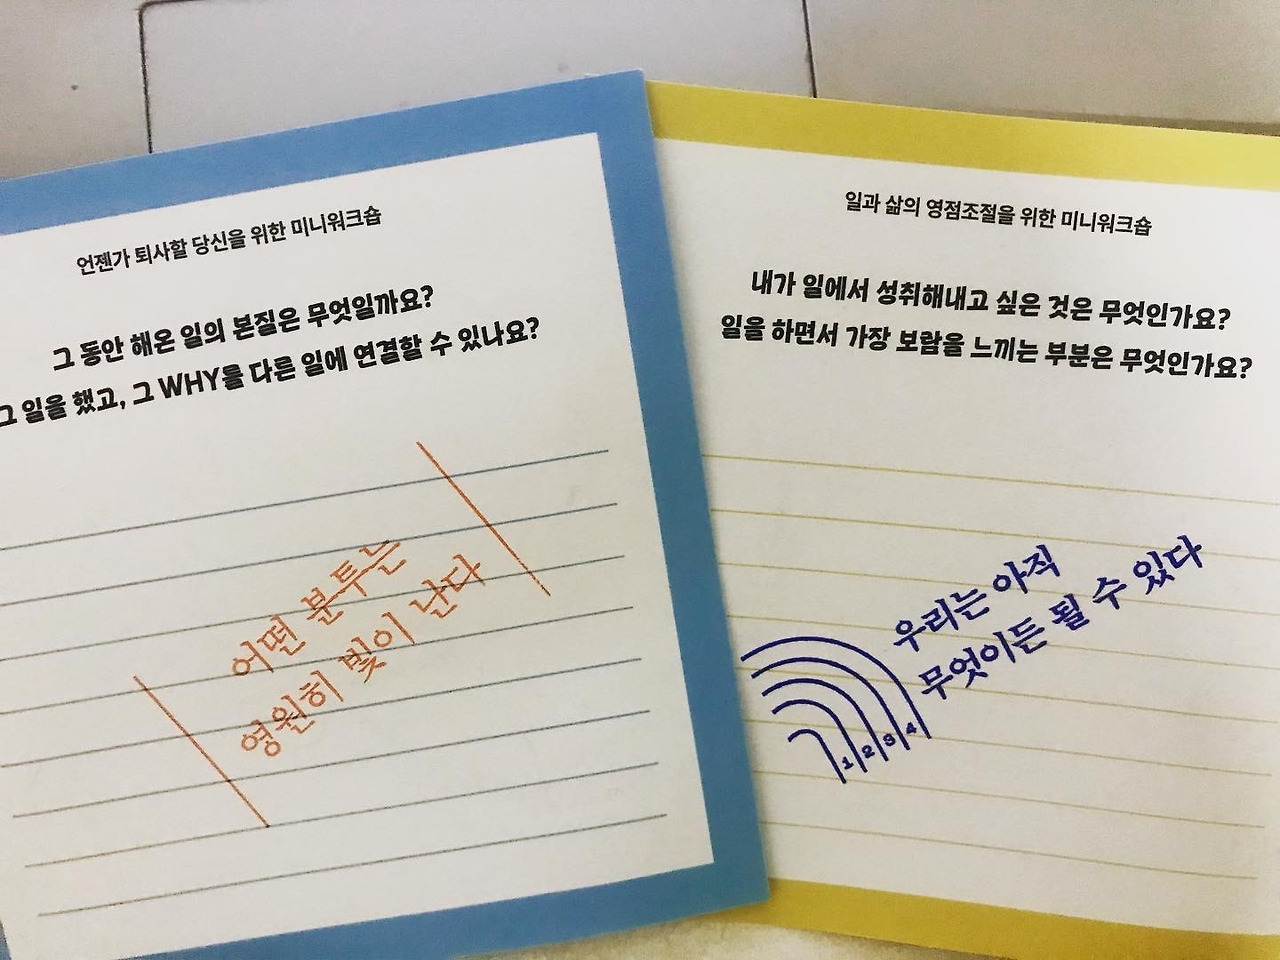 언젠가 퇴사할 당신을 위한 미니워크숍
그 동안 해온 일의 본질은 무엇일까요?
그 일을 했고, 그 WHY를 다른 일에 연결할 수 있나요?
어떤 분투는
영원히 빛이 난다
일과 삶의 영점조절을 위한 미니워크숍
내가 일에서 성취해내고 싶은 것은 무엇인가요?
일을 하면서 가장 보람을 느끼는 부분은 무엇인가요?
우리는 아직
무엇이든 될 수 있다
1 2 3 4